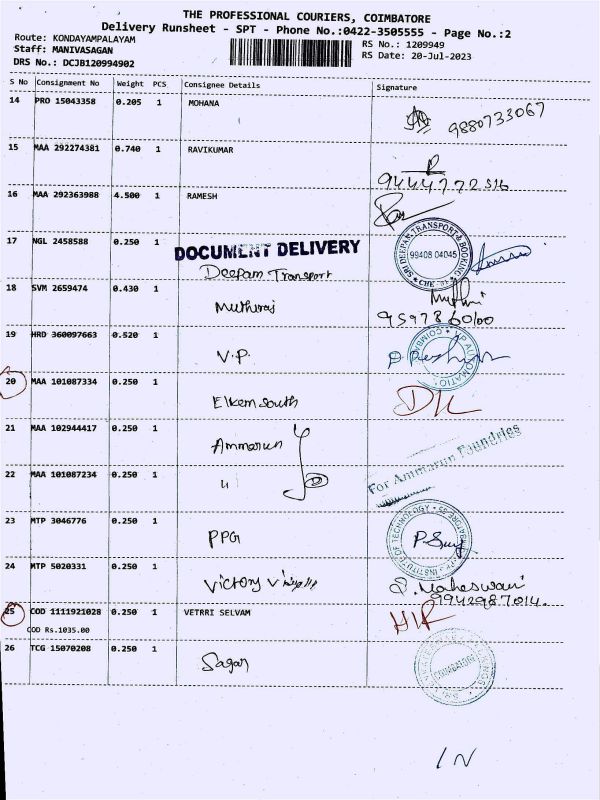 THE PROFESSIONAL COURIERS, COIMBATORE
Delivery Runsheet - SPT - Phone No.:0422-3505555 - Page No.:2
Route: KONDAYAMPALAYAM
Staff: MANIVASAGAN
DRS No.: DCJB120994902
RS No.: 1209949
RS Date: 20-Jul-2023
S No Consignment No Weight PCS Consignee Details Signature
14 PRO 15043358 0.205 1 MOHANA
9880733067
15 MAA 292274381 0.740 1 RAVIKUMAR
9444772516
16 MAA 292363988 4.500 1 RAMESH
17 NGL 2458588 0.250 1 DOCUMENT DELIVERY
Deepam Transport
SRI DEEPAM TRANSPORT & BOOKING
99408 04045
18 SVM 2659474 0.430 1 Muthuraj
9597860100
19 HRD 360097663 0.520 1 V.P.
20 MAA 101087334 0.250 1 Elkem South
21 MAA 102944417 0.250 1 Ammarun
For Ammarun Foundries
22 MAA 101087234 0.250 1 "
23 MTP 3046776 0.250 1 PPG
INSTITUTE OF TECHNOLOGY
24 MTP 5020331 0.250 1 Victory
S. Maheswari
9942987014.
25 COD 1111921028 0.250 1 VETRRI SELVAM
COD Rs.1035.00
26 TCG 15070208 0.250 1 Sagar
COIMBATORE
IN